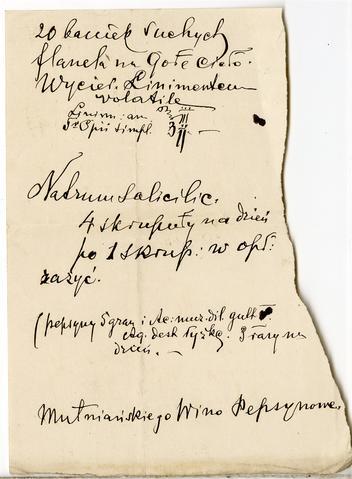 20 baniek suchych
flanela na Gołe ciało.
Wycier. Linimentem
volatile
Linim: am.
Tr Opii simpl. ʒii —
Natrum salicilic.
4 skrupuły na dzień
po 1 skrup: w opł:
zażyć.
(pepsyny 5 gran i Ac: mur. dil. gutt V.
Aq. dest łyżkę. 3 razy na
dzień. —
Mutniańskiego Wino Pepsynowe.